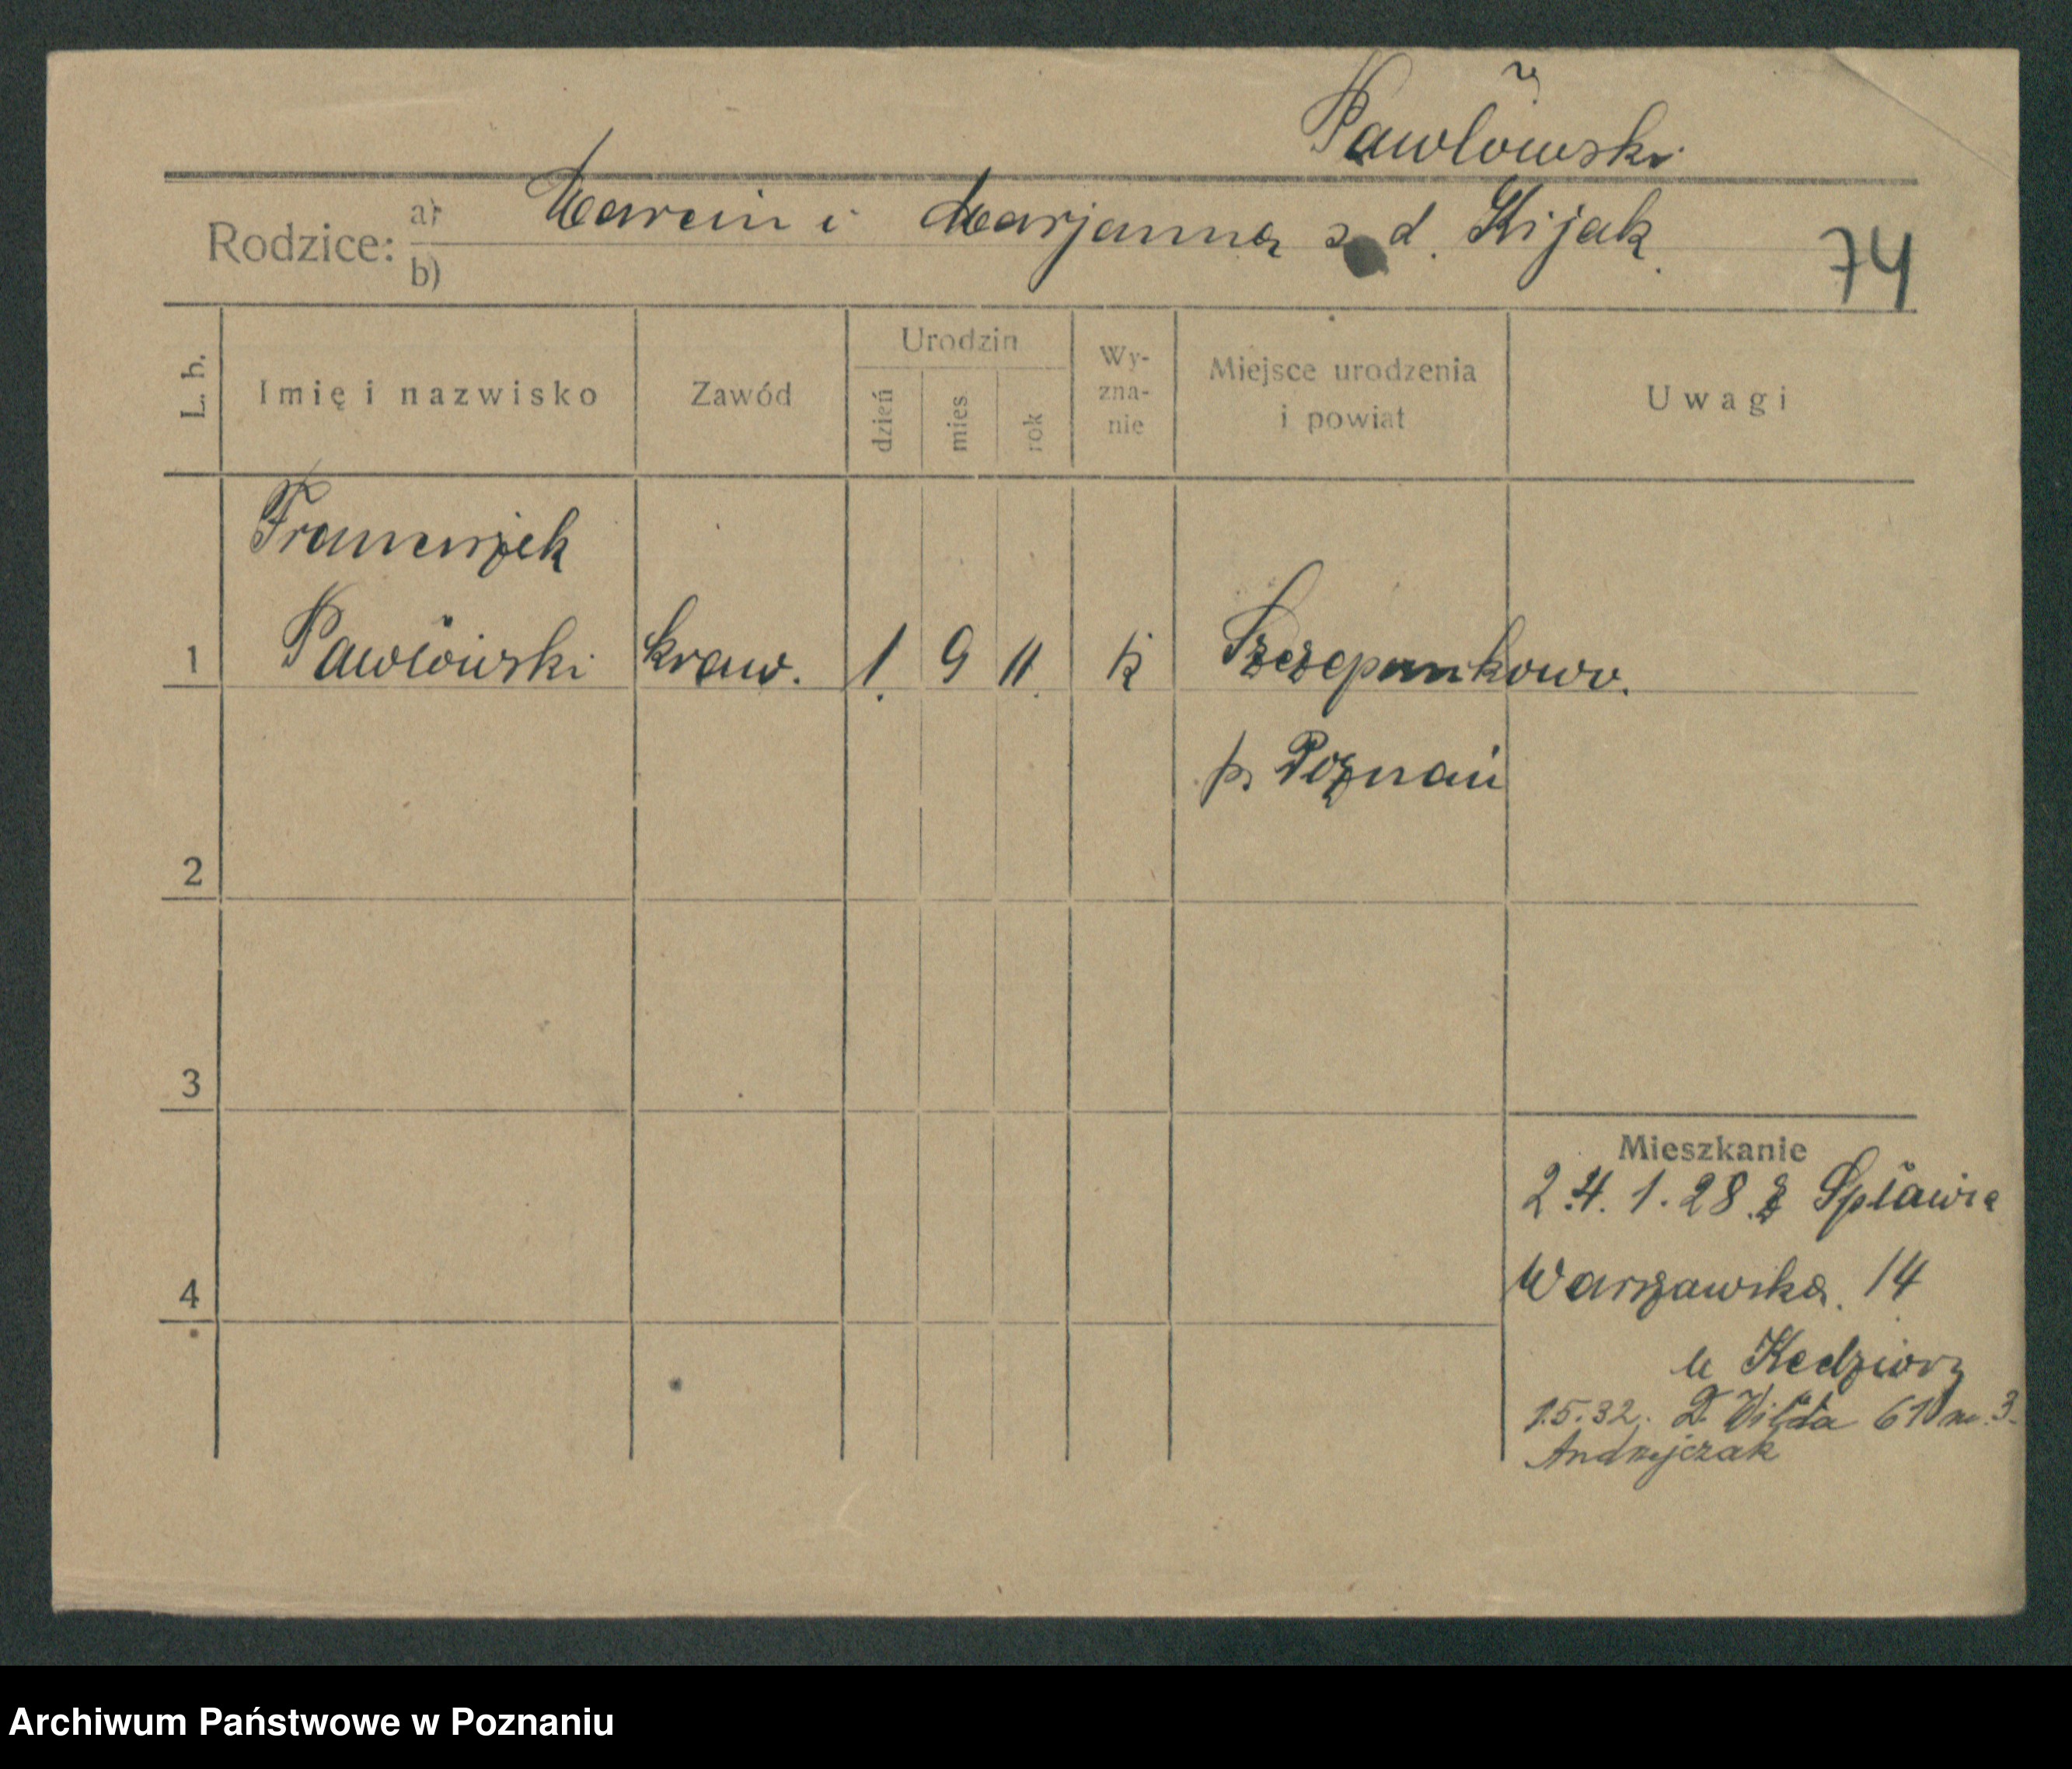 Pawłowski
Rodzice: a) Marcin i Marjanna z d. Kijak.
b)
74
L. b.
Imię i nazwisko
Zawód
Urodzin
dzień
mies.
rok
Wy-
zna-
nie
Miejsce urodzenia
i powiat
Uwagi
Franciszek
1 Pawłowski kraw. 1. 9 11. k Szczepankowo.
p. Poznań
2
3
4
Mieszkanie
24.1.28 z Spławie
Warszawska. 14
u Kedziory
1.5.32. D. Wilda 61 m. 3.
Andrzejczak
Archiwum Państwowe w Poznaniu